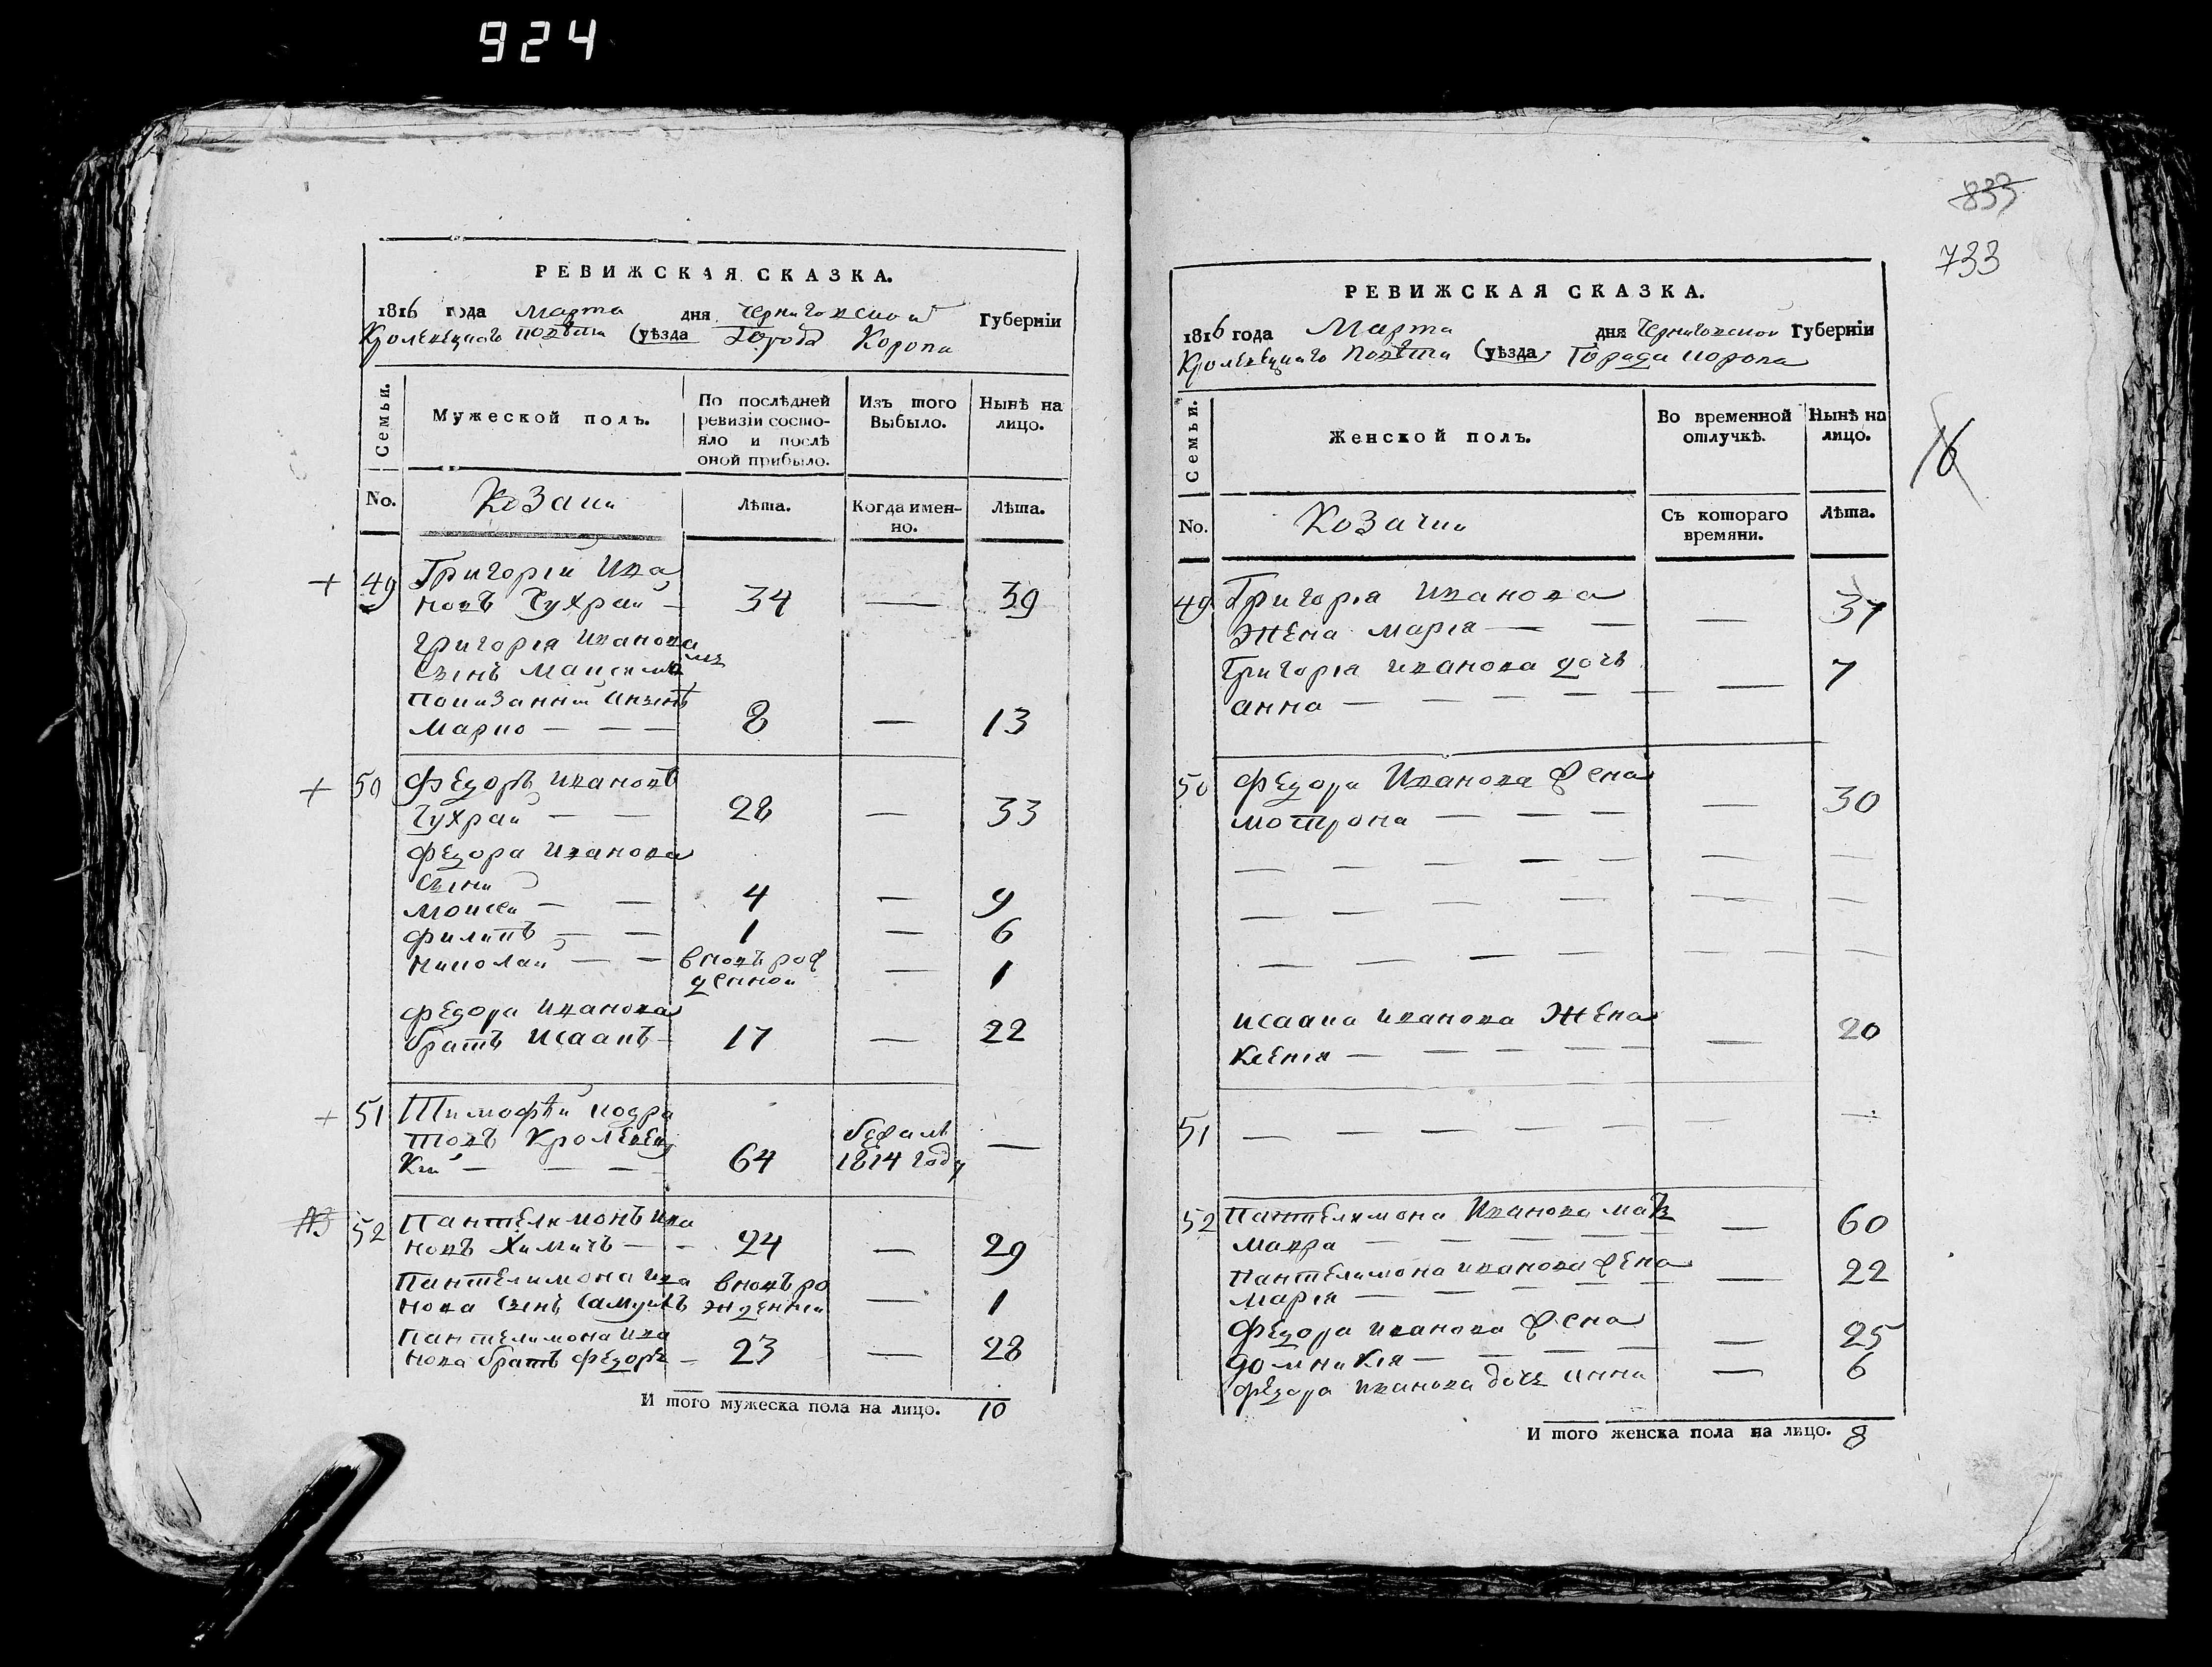 924
РЕВИЖСКАЯ СКАЗКА.
1816 года Марта дня Черниговской Губерніи
Кролевецкого повѣта (уѣзда Города Коропа
Семьи.
Мужеской полъ.
По послѣдней ревизіи состо-
яло и послѣ
оной прибыло.
Изъ того
Выбыло.
Нынѣ на
лицо.
No.
Козаки
Лѣта.
Когда имен-
но.
Лѣта.
+ 49 Григорій Ива
новъ Чухрай — 34 — 39
Григорія Иванова
Сынъ
показанный
Марко — — — 8 — 13
+ 50 Федоръ Ивановъ
Чухрай — — 28 — 33
Федора Иванова
Сыни
Моисей — — 4 — 9
Филипъ — — 1 — 6
Николай — — вновь рож
денной — 1
Федора Иванова
братъ Исаакъ — 17 — 22
+ 51 Тимофѣй Кодра
товъ Кролевец
Кій — — — 64 бежалъ
1814 году —
52 Пантелимонъ Ива
новъ Химичъ — — 24 — 29
Пантелимона Ива
нова Сынъ Самуилъ вновь ро
жденный — 1
Пантелимона Ива
нова братъ Федоръ — 23 — 28
И того мужеска пола на лицо. 10
833
733
16
РЕВИЖСКАЯ СКАЗКА.
1816 года Марта дня Черниговской Губерніи
Кролевецкого Повѣта (уѣзда Города Коропа
Семьи.
Женской полъ.
Во временной
отлучкѣ.
Нынѣ на
лицо.
No.
Козачки
Съ котораго
времяни.
Лѣта.
49 Григорія Иванова
Жена Марія — — — 37
Григорія Иванова дочь
анна — — — — — 7
50 Федора Иванова жена
мотрона — — — — 30
— — — — — — —
— — — — — — —
— — — — — — —
Исаака Иванова Жена
Ксенія — — — — — 20
51 — — — — — — —
52 Пантелимона Иванова мать
Мавра — — — — — 60
Пантелимона Иванова жена
Марія — — — — — 22
Федора Иванова жена
Домникія — — — — 25
Федора Иванова дочь Анна — 6
И того женска пола на лицо. 8